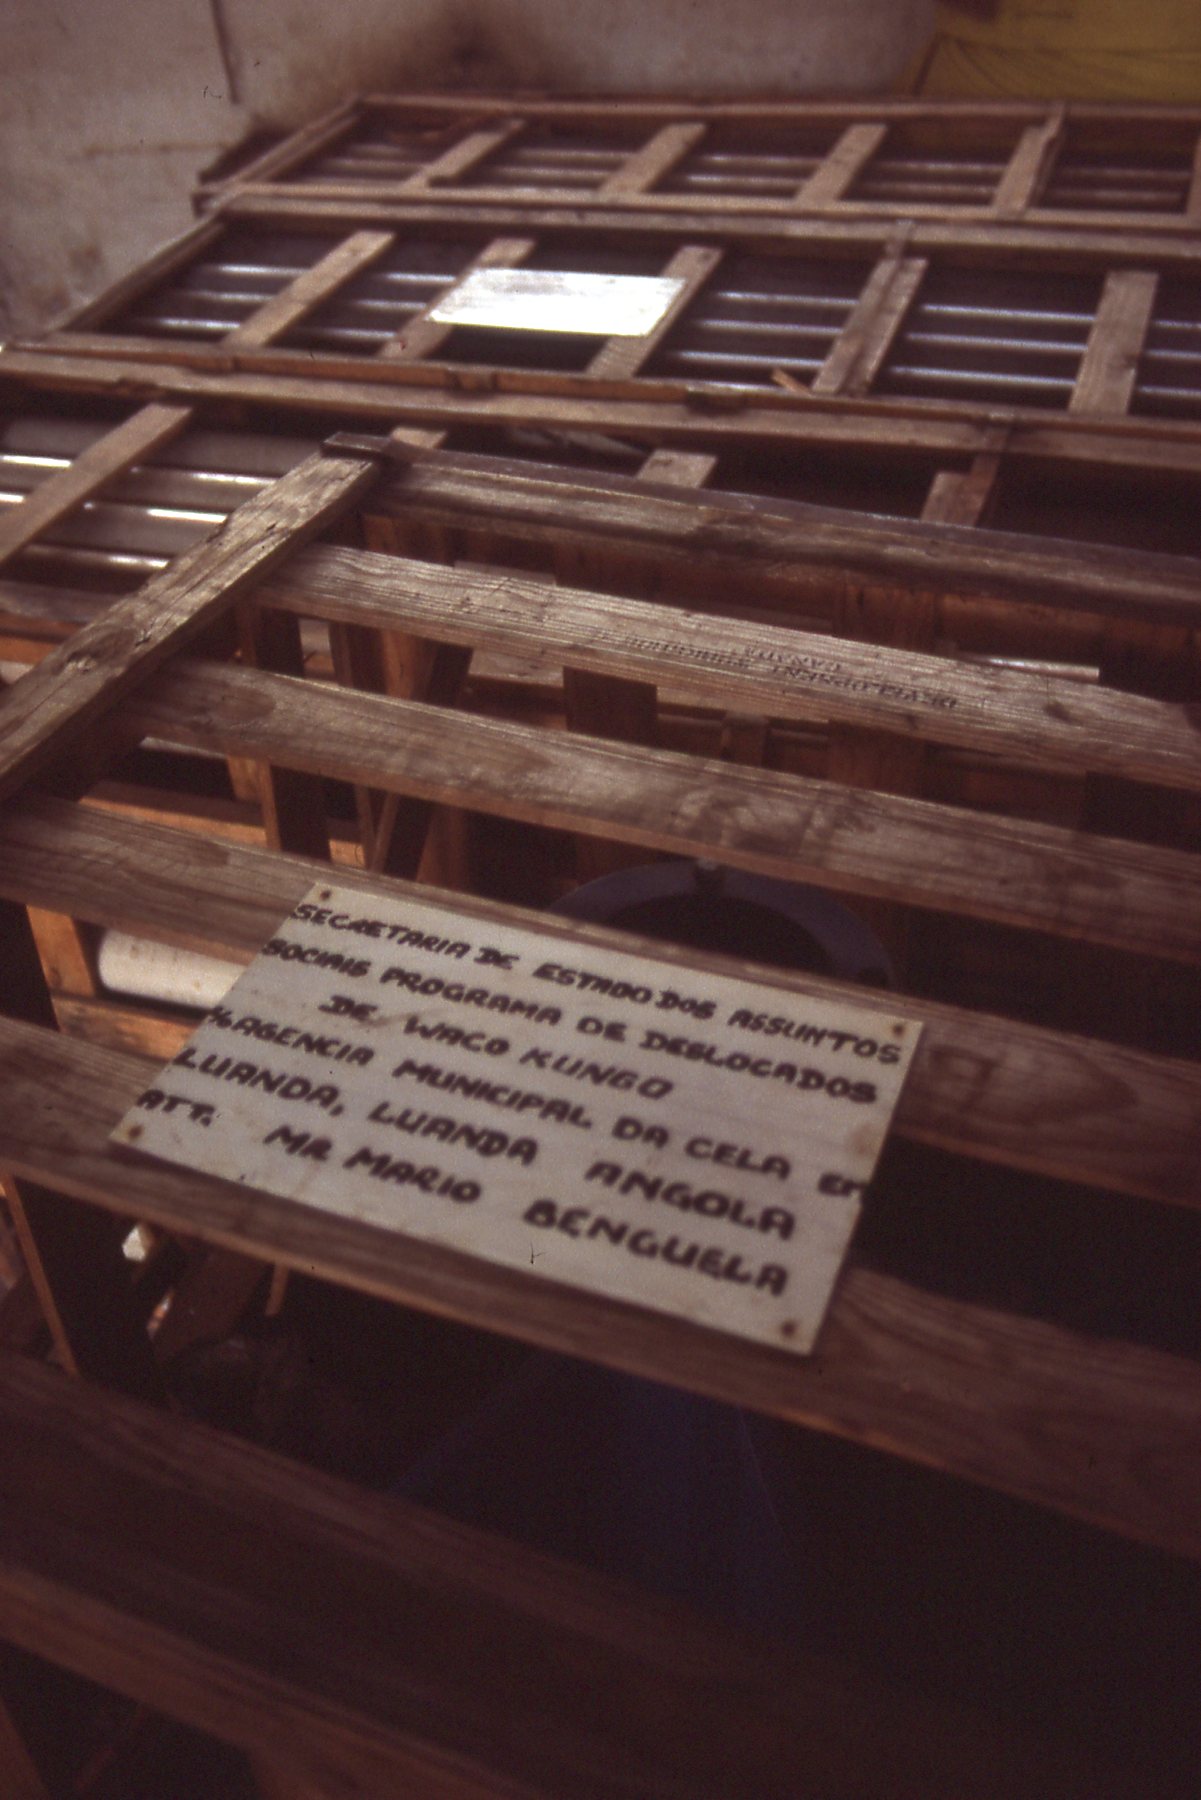 SECRETARIA DE ESTADO DOS ASSUNTOS
SOCIAIS PROGRAMA DE DESLOCADOS
DE WACO KUNGO
℅ AGENCIA MUNICIPAL DA CELA EM
LUANDA, LUANDA ANGOLA
ATT. MR MARIO BENGUELA